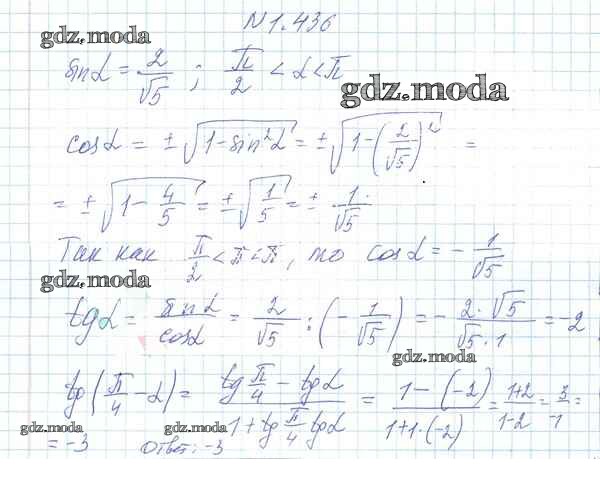 N 1.436
gdz.moda
sin α = 2/√5 ; π/2 < α < π
gdz.moda
cos α = ± √(1 - sin²α) = ± √(1 - (2/√5)²) =
= ± √(1 - 4/5) = ± √(1/5) = ± 1/√5
Так как π/2 < π < π, то cos α = - 1/√5
gdz.moda
tg α = sin α / cos α = 2/√5 : (- 1/√5) = - 2·√5 / √5·1 = -2
gdz.moda
tg (π/4 - α) = (tg π/4 - tg α) / (1 + tg π/4 tg α) = (1 - (-2)) / (1 + 1·(-2)) = (1+2)/(1-2) = 3/-1 =
gdz.moda gdz.moda gdz.moda
= -3 Ответ: -3